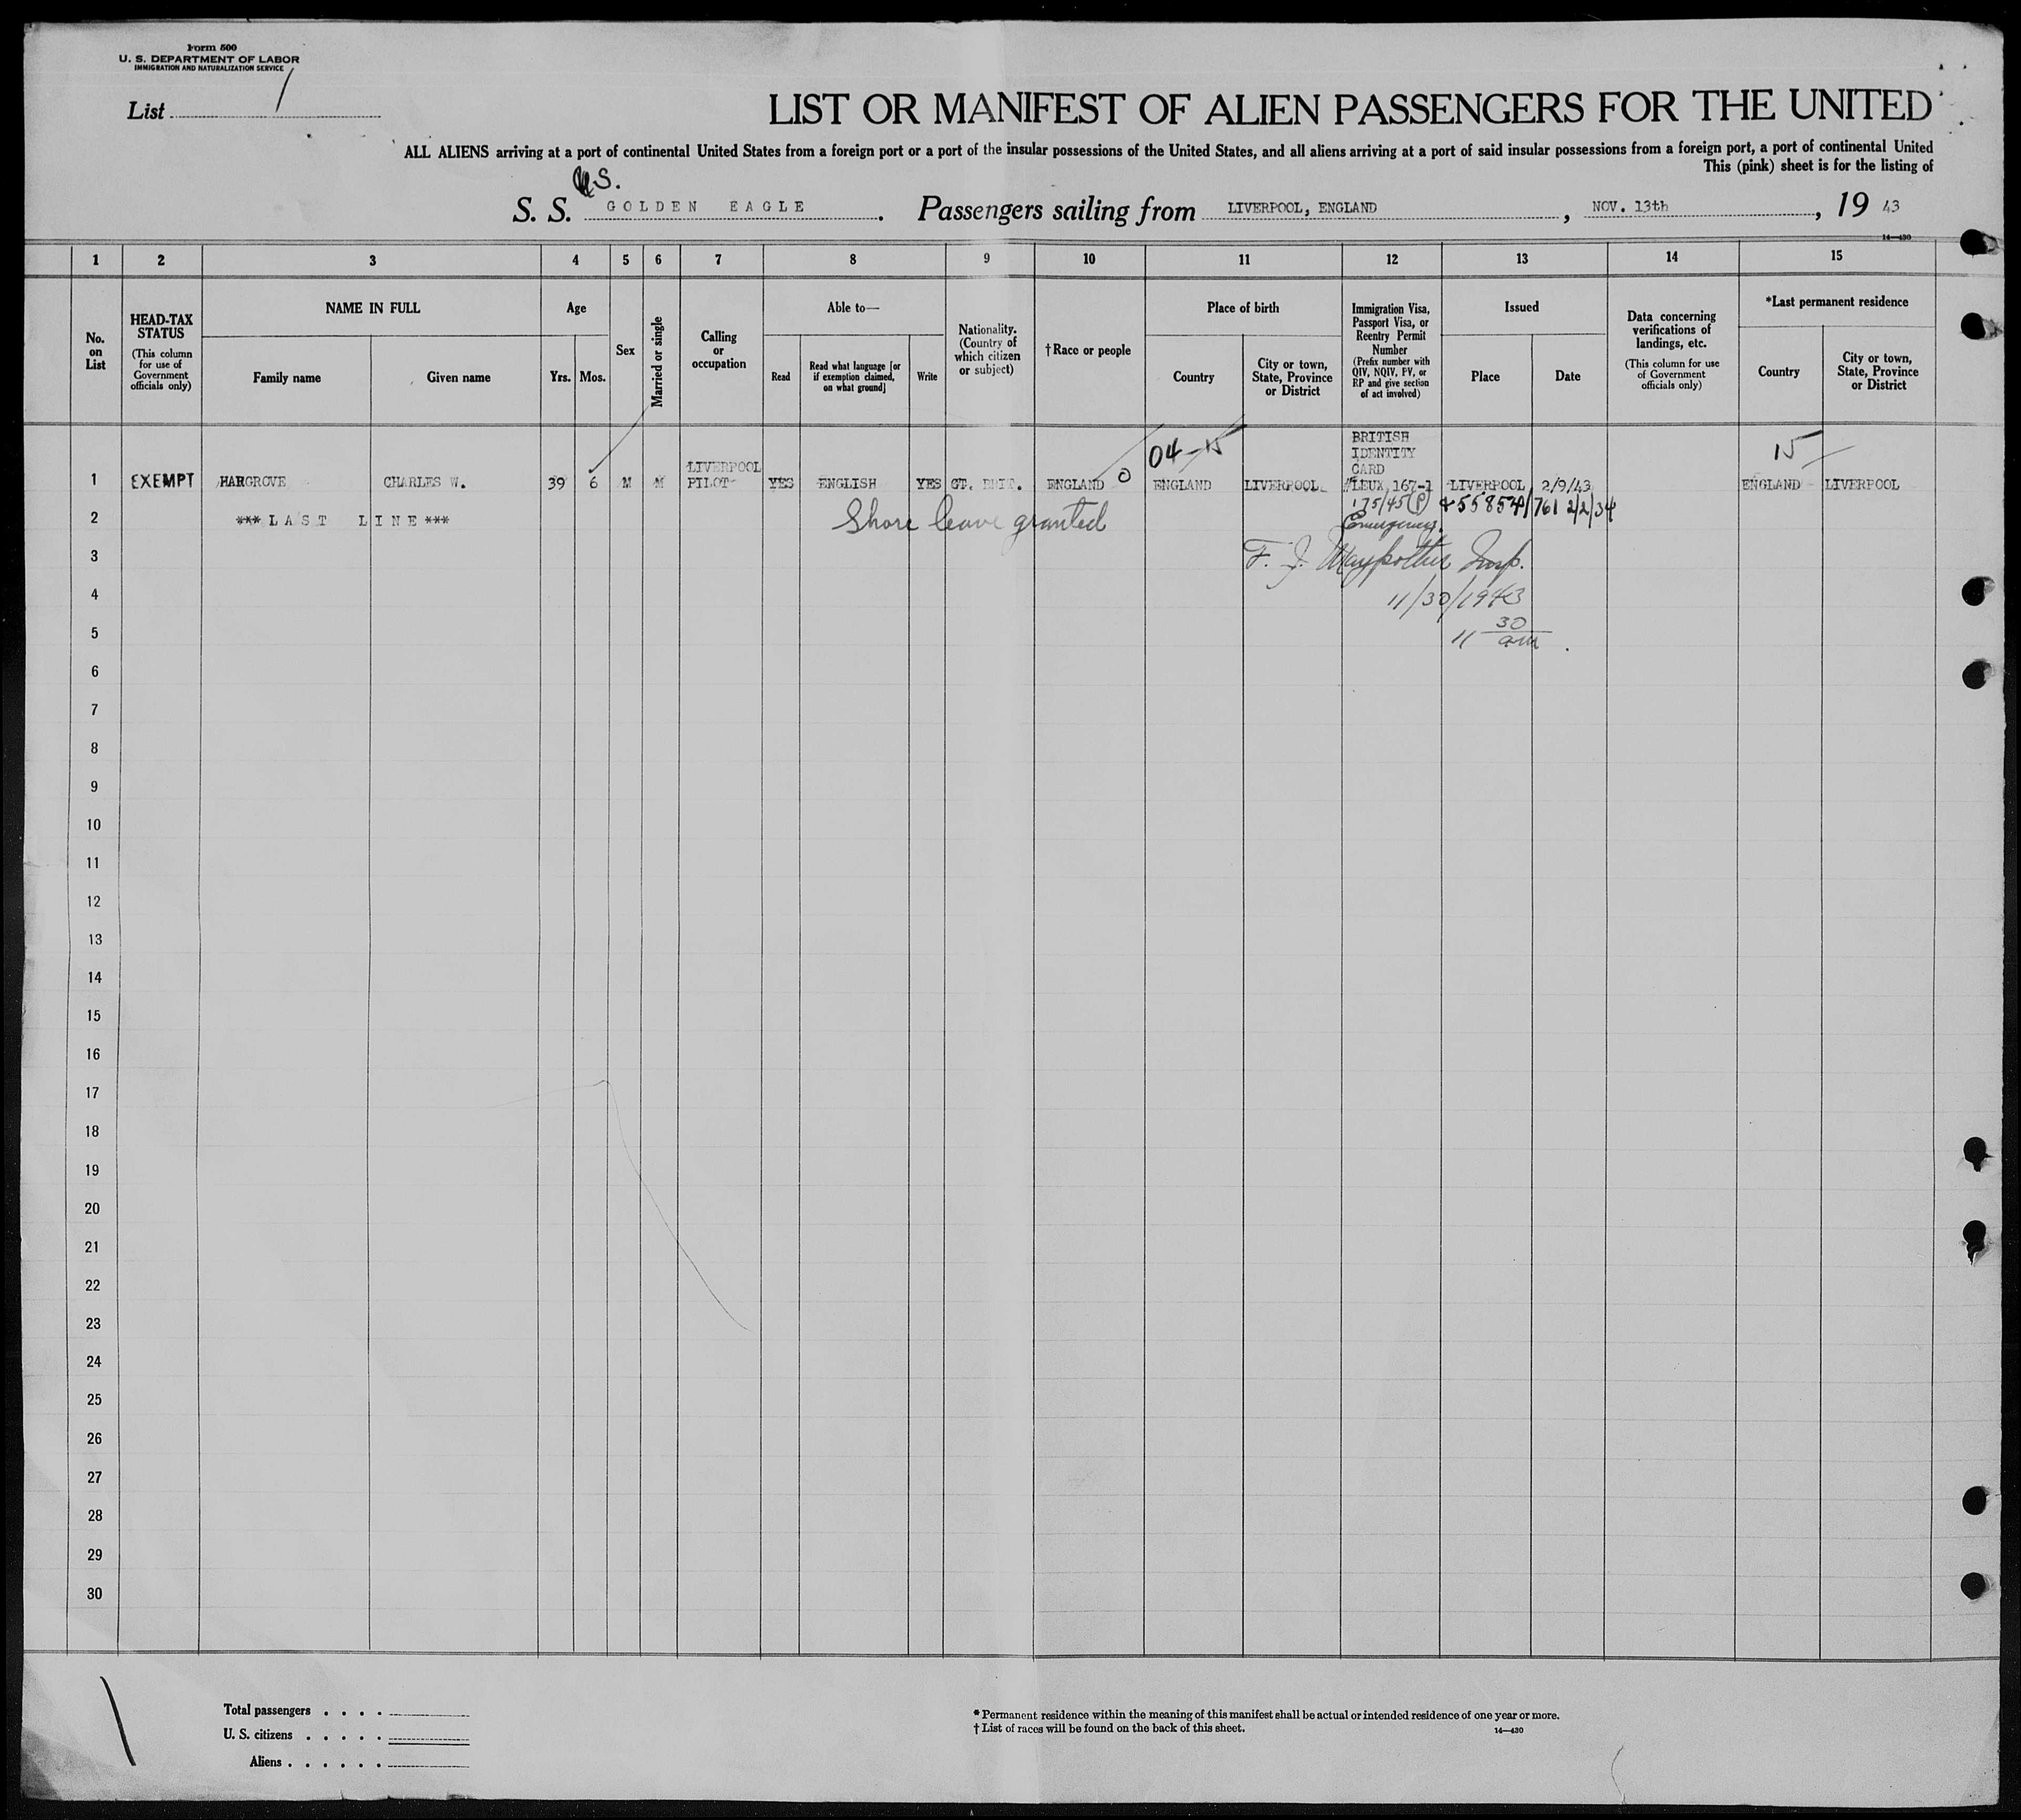 Form 500
U. S. DEPARTMENT OF LABOR
IMMIGRATION AND NATURALIZATION SERVICE
List 1
LIST OR MANIFEST OF ALIEN PASSENGERS FOR THE UNITED
ALL ALIENS arriving at a port of continental United States from a foreign port or a port of the insular possessions of the United States, and all aliens arriving at a port of said insular possessions from a foreign port, a port of continental United
This (pink) sheet is for the listing of
S. S. GOLDEN EAGLE. Passengers sailing from LIVERPOOL, ENGLAND, NOV. 13th, 19 43
14—430
1 2 3 4 5 6 7 8 9 10 11 12 13 14 15
No. on List
HEAD-TAX STATUS (This column for use of Government officials only)
NAME IN FULL
Family name Given name
Age
Yrs. Mos.
Sex
Married or single
Calling or occupation
Able to—
Read
Read what language [or if exemption claimed, on what ground]
Write
Nationality. (Country of which citizen or subject)
†Race or people
Place of birth
Country
City or town, State, Province or District
Immigration Visa, Passport Visa, or Reentry Permit Number (Prefix number with QIV, NQIV, PV, or RP and give section of act involved)
Issued
Place Date
Data concerning verifications of landings, etc. (This column for use of Government officials only)
*Last permanent residence
Country
City or town, State, Province or District
04-15
15
1 EXEMPT HARGROVE CHARLES W. 39 6 M M LIVERPOOL PILOT YES ENGLISH YES GT. BRIT. ENGLAND ENGLAND LIVERPOOL BRITISH IDENTITY CARD 167-1 LIVERPOOL 2/9/43 ENGLAND LIVERPOOL
2 *** LAST LINE *** Shore leave granted 175/45 (P) 2/2/34
Emergency
3 F. J. Insp.
4 11/30/1943
5 11 30 am
6
7
8
9
10
11
12
13
14
15
16
17
18
19
20
21
22
23
24
25
26
27
28
29
30
Total passengers . . . .
U. S. citizens . . . . .
Aliens . . . . . .
* Permanent residence within the meaning of this manifest shall be actual or intended residence of one year or more.
† List of races will be found on the back of this sheet. 14—430